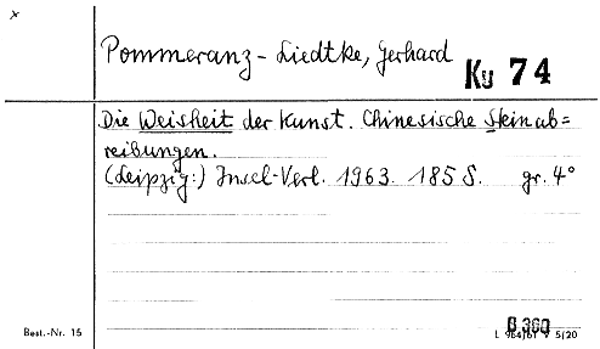 x
Pommeranz-Liedtke, Gerhard
Ku 74
Die Weisheit der Kunst. Chinesische Steinab=
reibungen.
(Leipzig:) Insel-Verl. 1963. 185 S. gr. 4°
B 360
Best.-Nr. 15
5/20